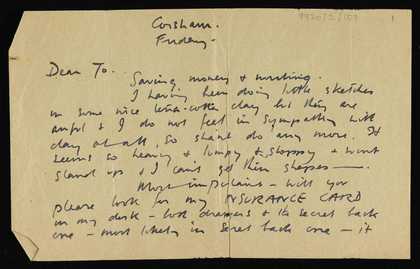 9920/2/107
1
Corsham.
Friday –
Dear To.
Saving money & working.
I having been doing little sketches
in some nice terra-cotta clay but they are
awful & I do not feel in sympathy with
clay at all, so shant do any more. It
seems so heavy & lumpy & sloppy & wont
stand up & I cant get thin shapes —
Most important – will you
please look for my INSURANCE CARD
in my desk – look drawers & the secret back
one – most likely in secret back one – it